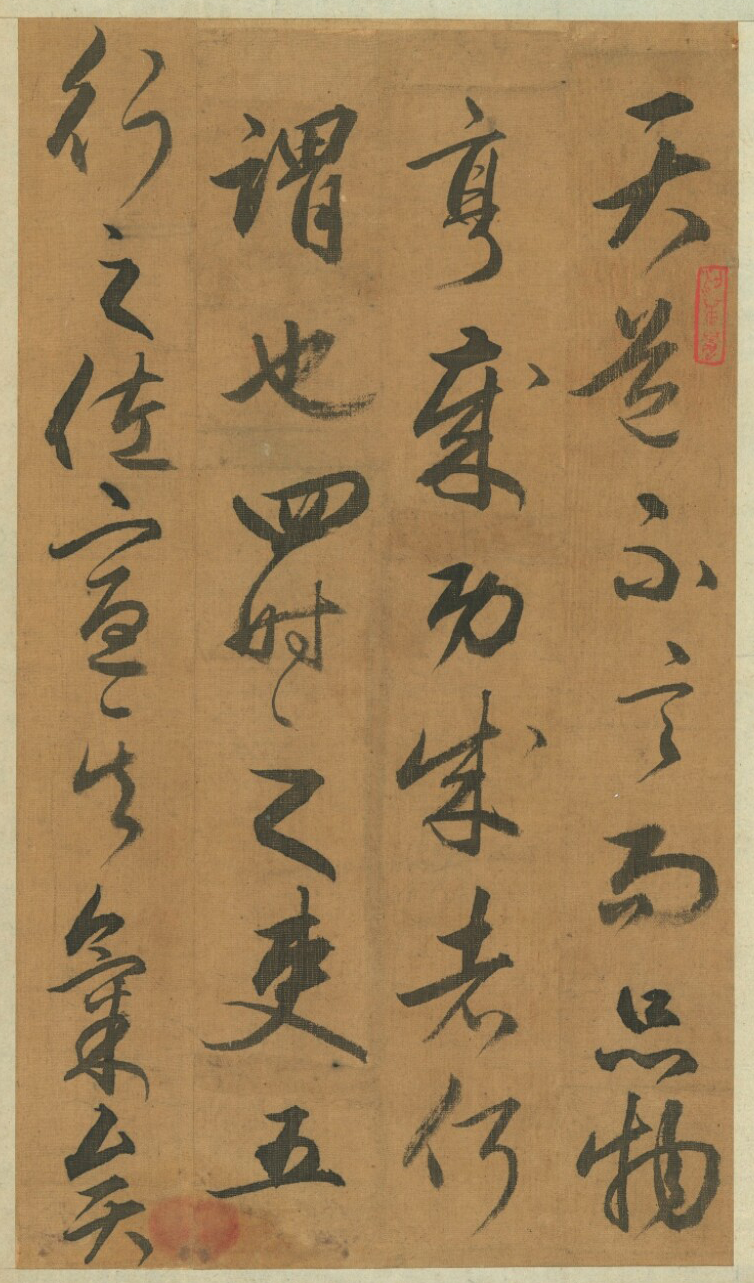 天道不言而品物
亨歲功成者何
謂也四時之吏五
行之佐宣其氣矣